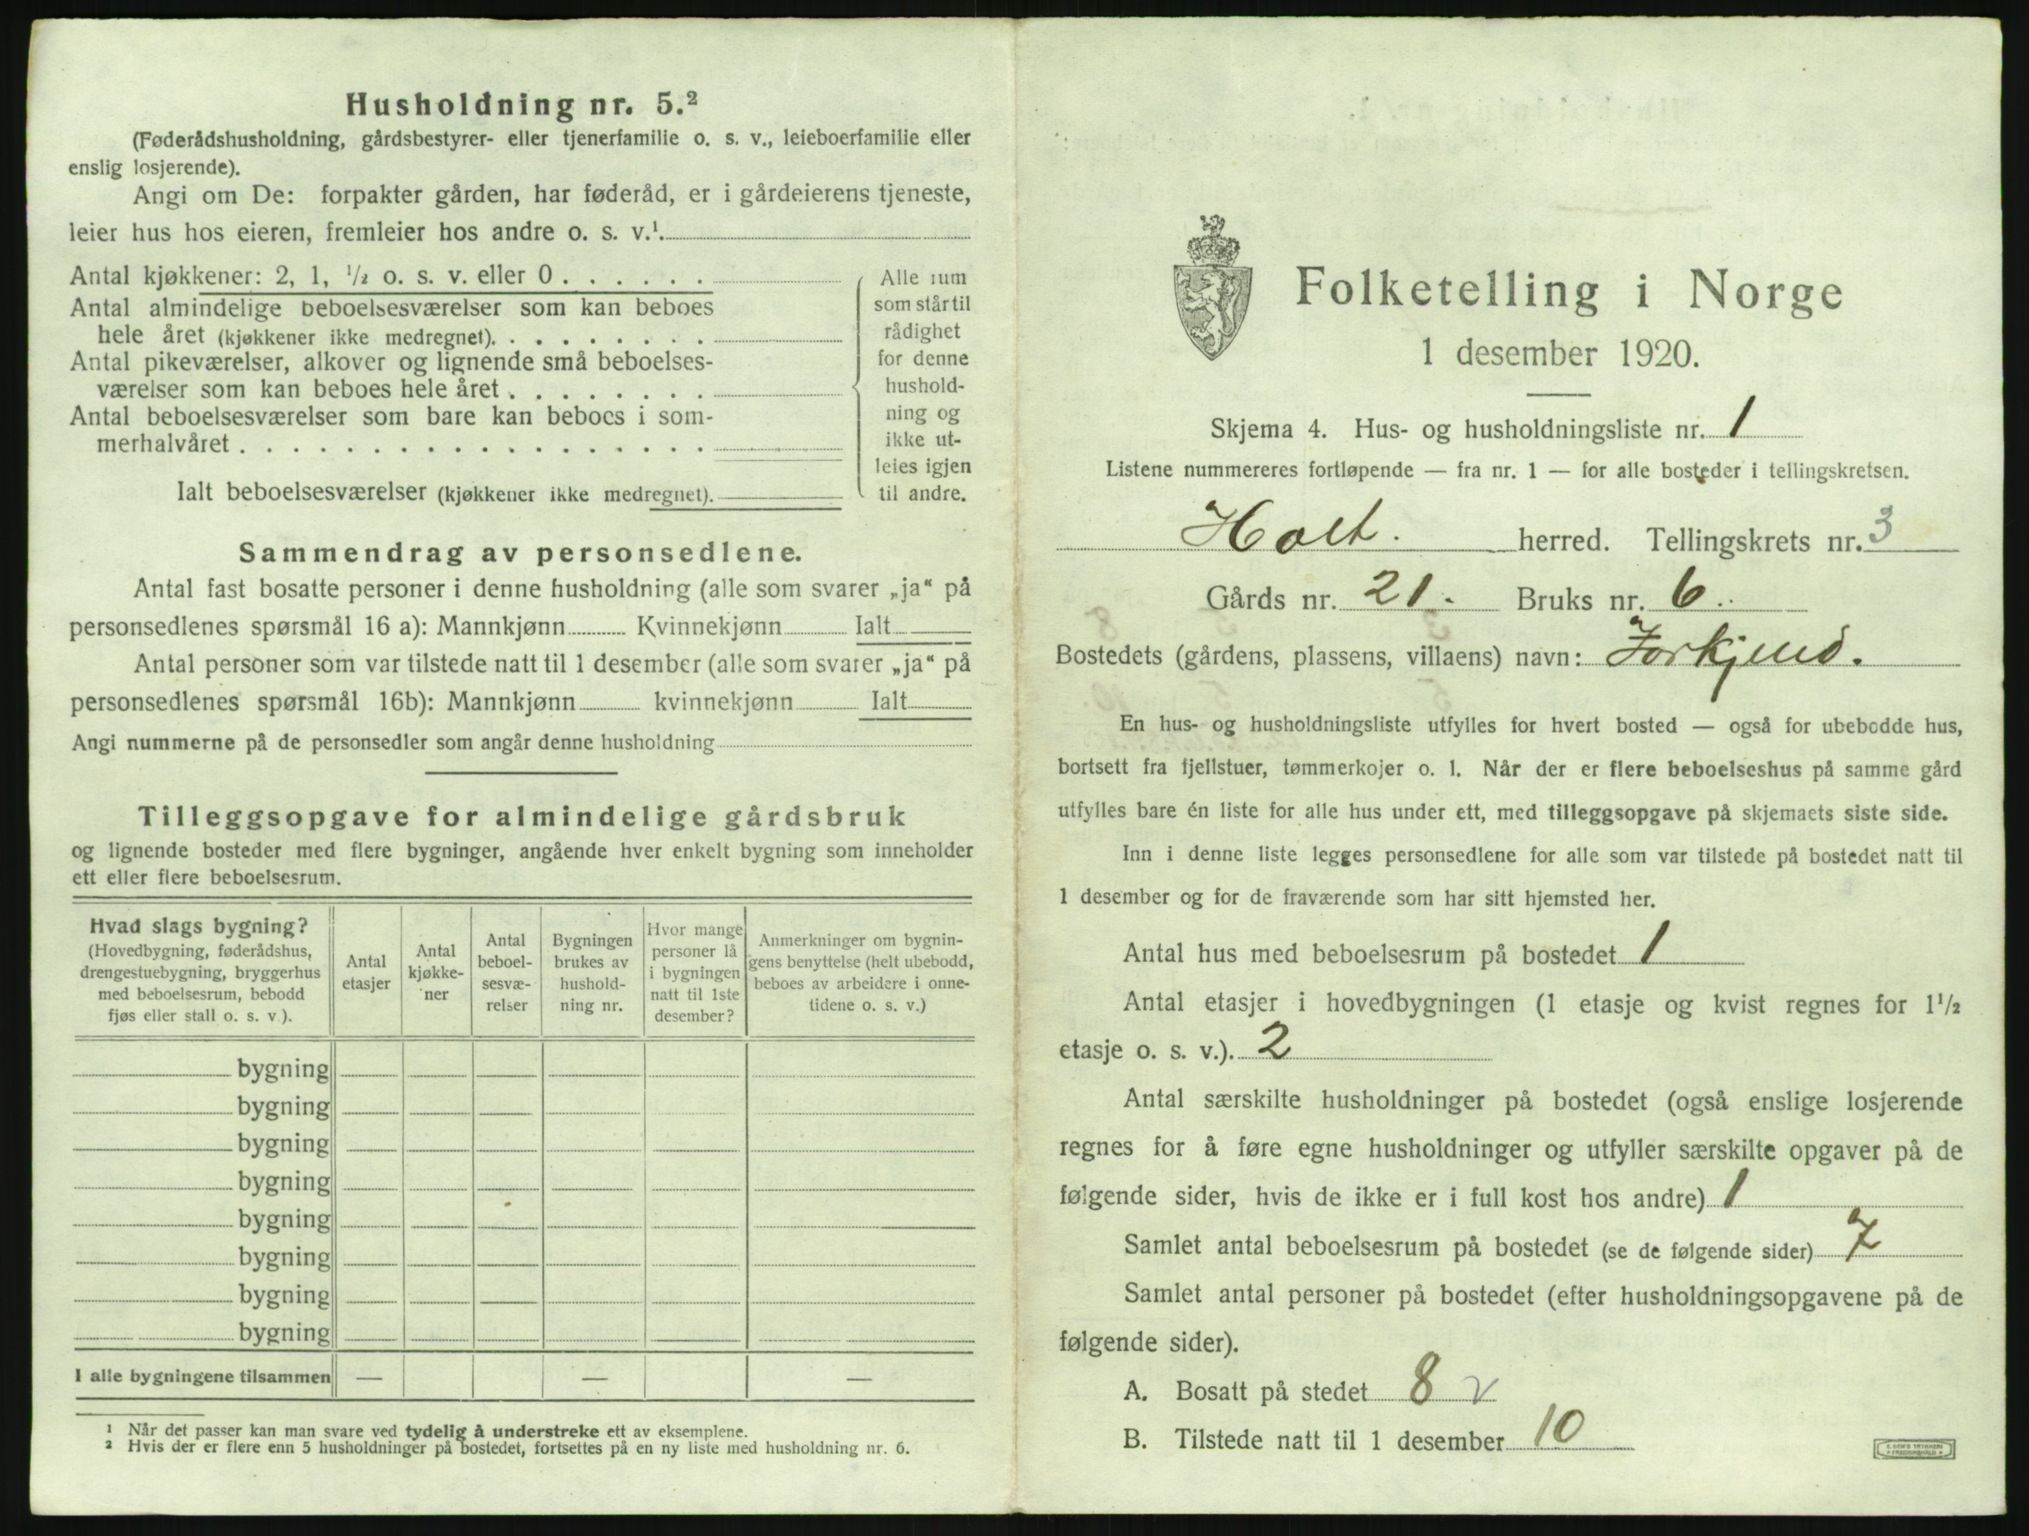 Husholdning nr. 5.²
(Føderådshusholdning, gårdsbestyrer- eller tjenerfamilie o. s. v., leieboerfamilie eller
enslig losjerende).
Angi om De: forpakter gården, har føderåd, er i gårdeierens tjeneste,
leier hus hos eieren, fremleier hos andre o. s. v.¹
Antal kjøkkener: 2, 1, ½ o. s. v. eller 0 . . . . . .
Antal almindelige beboelsesværelser som kan beboes
hele året (kjøkkener ikke medregnet). . . . . . . . .
Antal pikeværelser, alkover og lignende små beboelses-
værelser som kan beboes hele året . . . . . . . .
Antal beboelsesværelser som bare kan beboes i som-
merhalvåret . . . . . . . . . . . . . . . . . .
Ialt beboelsesværelser (kjøkkener ikke medregnet).
Alle rum
som står til
rådighet
for denne
hushold-
ning og
ikke ut-
leies igjen
til andre.
Sammendrag av personsedlene.
Antal fast bosatte personer i denne husholdning (alle som svarer „ja“ på
personsedlenes spørsmål 16 a): Mannkjønn Kvinnekjønn Ialt
Antal personer som var tilstede natt til 1 desember (alle som svarer „ja“ på
personsedlenes spørsmål 16b): Mannkjønn kvinnekjønn Ialt
Angi nummerne på de personsedler som angår denne husholdning
Tilleggsopgave for almindelige gårdsbruk
og lignende bosteder med flere bygninger, angående hver enkelt bygning som inneholder
ett eller flere beboelsesrum.
Hvad slags bygning?
(Hovedbygning, føderådshus,
drengestuebygning, bryggerhus
med beboelsesrum, bebodd
fjøs eller stall o. s. v ).
Antal
etasjer
Antal
kjøkke-
ner
Antal
beboel-
sesvæ-
relser
Bygningen
brukes av
hushold-
ning nr.
Hvor mange
personer lå
i bygningen
natt til 1ste
desember?
Anmerkninger om bygnin-
gens benyttelse (helt ubebodd,
beboes av arbeidere i onne-
tidene o. s. v.)
bygning
bygning
bygning
bygning
bygning
bygning
bygning
bygning
I alle bygningene tilsammen — — —
¹ Når det passer kan man svare ved tydelig å understreke ett av eksemplene.
² Hvis der er flere enn 5 husholdninger på bostedet, fortsettes på en ny liste med husholdning nr. 6.
Folketelling i Norge
1 desember 1920.
Skjema 4. Hus- og husholdningsliste nr. 1
Listene nummereres fortløpende — fra nr. 1 — for alle bosteder i tellingskretsen.
Holt. herred. Tellingskrets nr. 3
Gårds nr. 21. Bruks nr. 6.
Bostedets (gårdens, plassens, villaens) navn:
En hus- og husholdningsliste utfylles for hvert bosted — også for ubebodde hus,
bortsett fra fjellstuer, tømmerkojer o. l. Når der er flere beboelseshus på samme gård
utfylles bare én liste for alle hus under ett, med tilleggsopgave på skjemaets siste side.
Inn i denne liste legges personsedlene for alle som var tilstede på bostedet natt til
1 desember og for de fraværende som har sitt hjemsted her.
Antal hus med beboelsesrum på bostedet 1
Antal etasjer i hovedbygningen (1 etasje og kvist regnes for 1½
etasje o. s. v.). 2
Antal særskilte husholdninger på bostedet (også enslige losjerende
regnes for å føre egne husholdninger og utfyller særskilte opgaver på de
følgende sider, hvis de ikke er i full kost hos andre) 1
Samlet antal beboelsesrum på bostedet (se de følgende sider) 7
Samlet antal personer på bostedet (efter husholdningsopgavene på de
følgende sider).
A. Bosatt på stedet 8 v
B. Tilstede natt til 1 desember 10